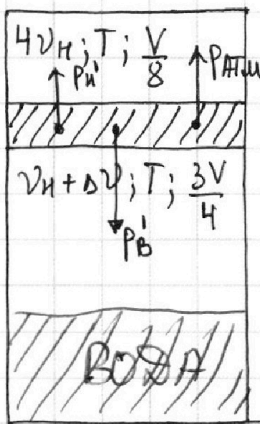 4νн; T; V/8
Pн' Pатм
νн + Δν; T; 3V/4
Pв'
ВОДА